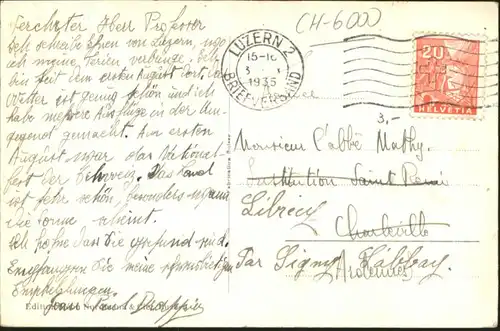 Verehrter Herr Professor
Ich schreibe Ihnen von Luzern, wo
ich meine Ferien verbringe. Ich
bin seit dem ersten August dort. Das
Wetter ist genug schön und ich
habe mehrere Ausflüge in der Um-
gegend gemacht. Am ersten
August war das National-
fest der Schweiz. Das Land
ist sehr schön, besonders wenn
die Sonne scheint.
Ich hoffe dass Sie gesund sind.
Empfangen Sie meine
Empfehlungen.
Jean Paul
CH-6000
LUZERN 2
15-16
1935
BRIEFVERSAND
20
HELVETIA
3,-
Monsieur l'abbé Mathy.
Institution Saint Remi
Charleville
Par Signy l'abbay
Ardennes